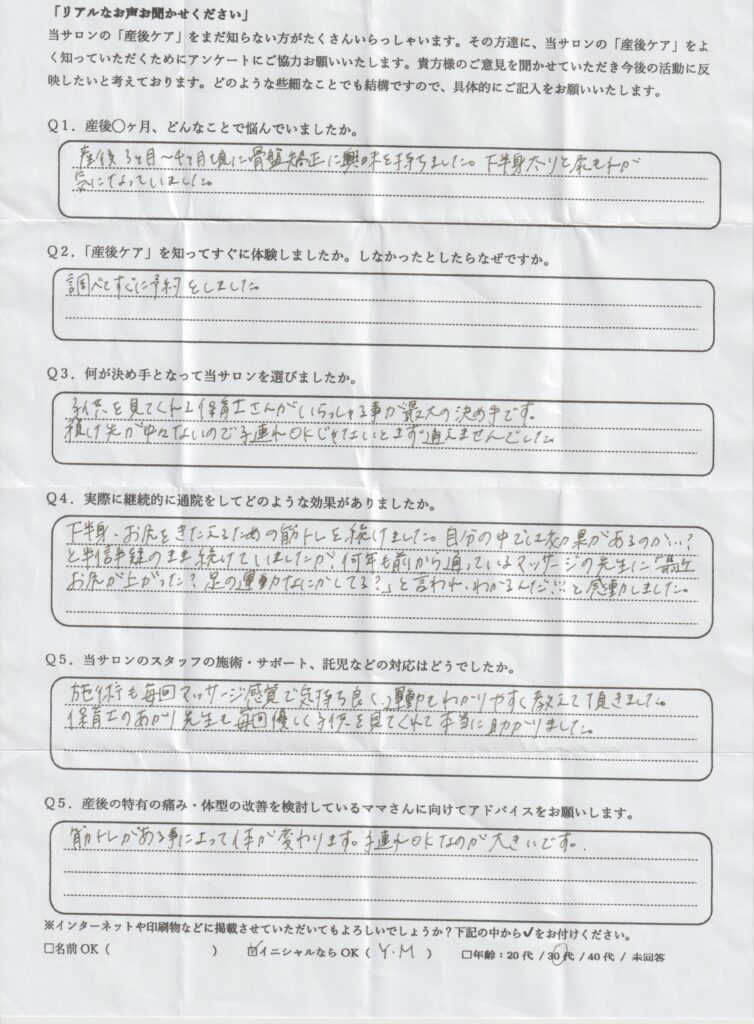 「リアルなお声お聞かせください」
当サロンの「産後ケア」をまだ知らない方がたくさんいらっしゃいます。その方達に、当サロンの「産後ケア」をよ
く知っていただくためにアンケートにご協力お願いいたします。貴方様のご意見を聞かせていただき今後の活動に反
映したいと考えております。どのような些細なことでも結構ですので、具体的にご記入をお願いいたします。
Q1．産後〇ヶ月、どんなことで悩んでいましたか。
産後3ヶ月〜4ヶ月頃に骨盤矯正に興味を持ちました。下半身太りと尿もれが
気になっていました。
Q2．「産後ケア」を知ってすぐに体験しましたか。しなかったとしたらなぜですか。
調べてすぐに予約をしました。
Q3．何が決め手となって当サロンを選びましたか。
子供を見てくれる保育士さんがいらっしゃる事が最大の決め手です。
預け先が中々ないので子連れOKじゃないとまず通えませんでした。
Q4．実際に継続的に通院をしてどのような効果がありましたか。
下半身、お尻をきたえるための筋トレを続けました。自分の中では効果があるのか…?
と半信半疑のまま続けていましたが、何年も前から通っているマッサージの先生に「最近
お尻が上がった?足の運動なにかしてる?」と言われ、わかるんだ!!と感動しました。
Q5．当サロンのスタッフの施術・サポート、託児などの対応はどうでしたか。
施術も毎回マッサージ感覚で気持ち良く、運動もわかりやすく教えて頂きました。
保育士のあかり先生も毎回優しく子供を見てくれて本当に助かりました。
Q5．産後の特有の痛み・体型の改善を検討しているママさんに向けてアドバイスをお願いします。
筋トレがある事によって体が変わります。子連れOKなのが大きいです。
※インターネットや印刷物などに掲載させていただいてもよろしいでしょうか？下記の中から✓をお付けください。
□名前OK（　　　　　　　） ☑イニシャルならOK（ Y・M ） □年齢：20代 / 30代 / 40代 / 未回答